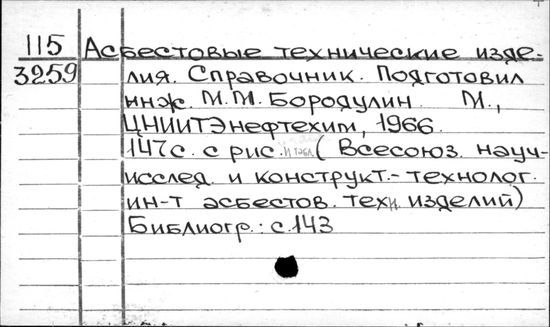 115 Асбестовые технические изде-
3259 лия. Справочник. Подготовил
инж. М.М. Бородулин. М.,
ЦНИИТЭнефтехим, 1966.
147с. с рис. и табл. (Всесоюз. науч-
исслед. и конструкт.-технолог.
ин-т асбестов. техн. изделий)
Библиогр.: с.143